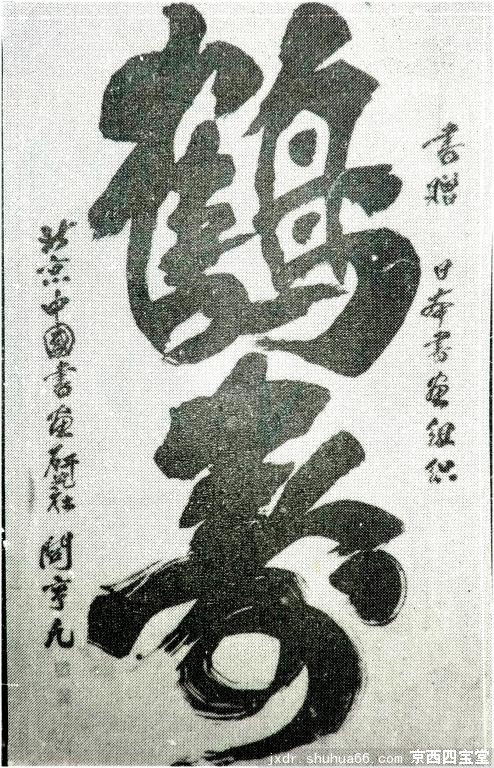 鹤寿
书赠 日本書画组织
北京中國書画研究社
jxdr.shuhua66.com 京西四宝堂